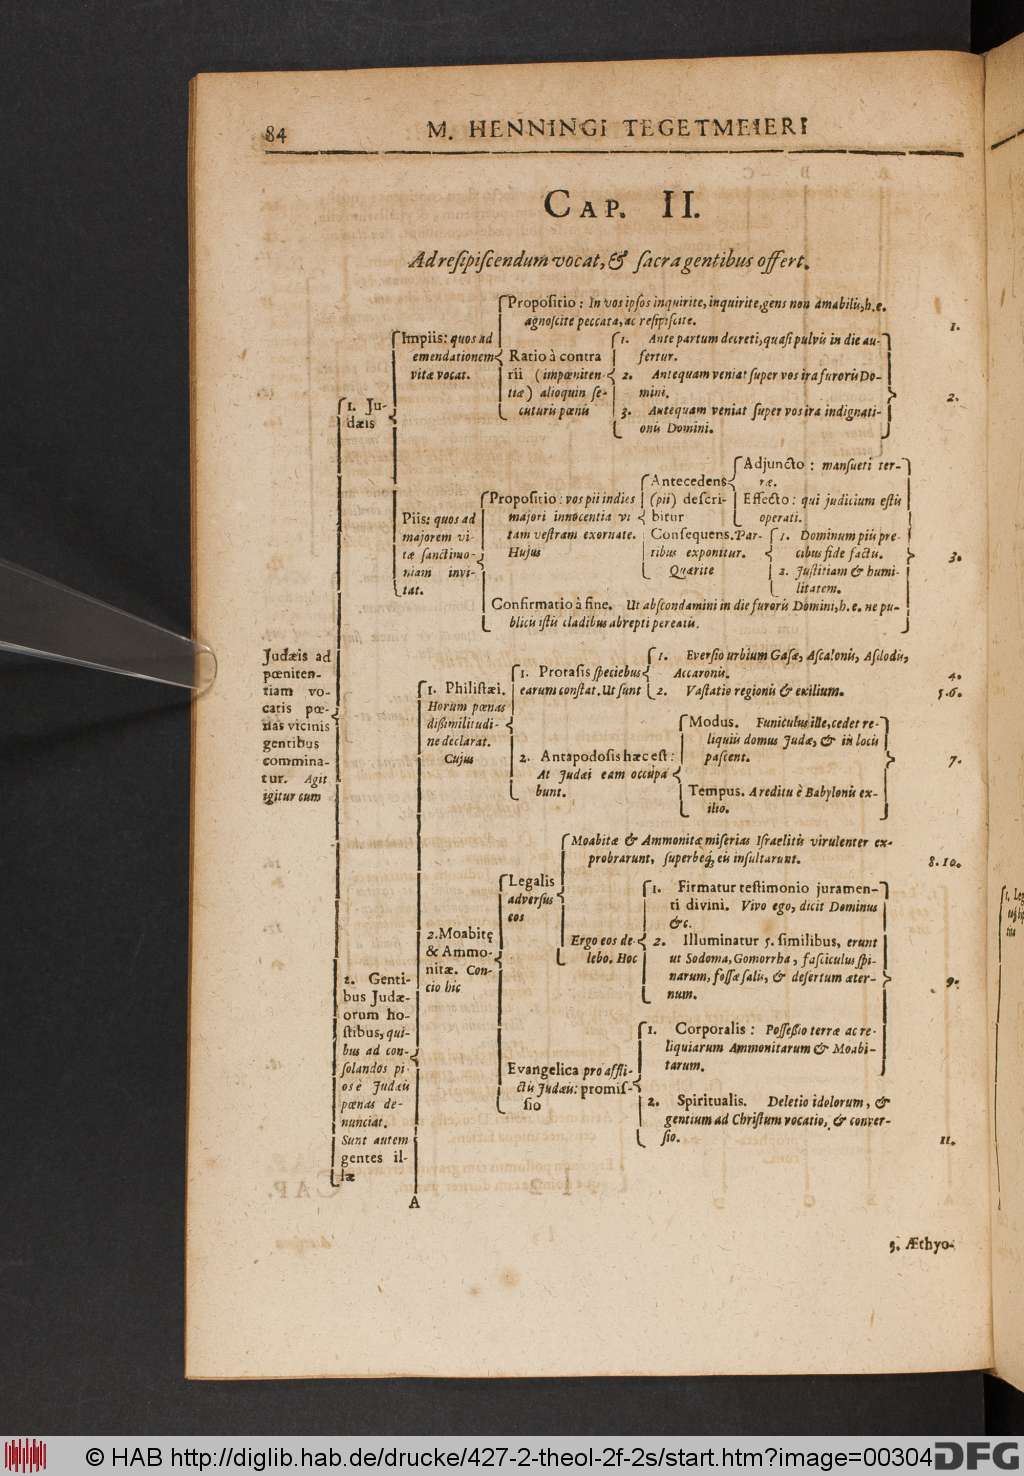 84
M. HENNINGI TEGETMEIERI
CAP. II.
Ad reſipiſcendum vocat, & ſacra gentibus offert.
Judæis ad
pœniten-
tiam vo-
catis pœ-
nas vicinis
gentibus
commina-
tur. Agit
igitur cum
1. Ju-
dæis
Impiis: quos ad
emendationem
vitæ vocat.
Propoſitio: In vos ipſos inquirite, inquirite, gens non amabilis, h. e.
agnoſcite peccata, ac reſipiſcite.
1.
Ratio à contra
rii (impœniten-
tiæ) alioquin ſe-
cuturis pœnis
1. Ante partum decreti, quaſi pulvis in die au-
fertur.
2. Antequam veniat ſuper vos ira furoris Do-
mini.
3. Antequam veniat ſuper vos ira indignati-
onis Domini.
2.
Piis: quos ad
majorem vi-
tæ ſanctimo-
niam invi-
tat.
Propoſitio: vos pii indies
majori innocentia vi
tam veſtram exornate.
Hujus
Antecedens
(pii) deſcri-
bitur
Adjuncto: manſueti ter-
ræ.
Effecto: qui judicium eſtis
operati.
Conſequens. Par-
tibus exponitur.
Quærite
1. Dominum piis pre-
cibus fide factis.
2. Juſtitiam & humi-
litatem.
3.
Confirmatio à fine. Ut abſcondamini in die furoris Domini, h. e. ne pu-
blicis iſtis cladibus abrepti pereatis.
2. Genti-
bus Judæ-
orum ho-
ſtibus, qui-
bus ad con-
ſolandos pi
os è Judæis
pœnas de-
nunciat.
Sunt autem
gentes il-
læ
1. Philiſtæi.
Horum pœnas
diſſimilitudi-
ne declarat.
Cujus
1. Protaſis ſpeciebus
earum conſtat. Ut ſunt
1. Everſio urbium Gaſæ, Aſcalonis, Aſdodis,
Accaronis.
4.
2. Vaſtatio regionis & exilium.
5. 6.
2. Antapodoſis hæc eſt:
At Judæi eam occupa
bunt.
Modus. Funiculus ille, cedet re-
liquiis domus Judæ, & in locis
paſcent.
7.
Tempus. A reditu è Babylonis ex-
ilio.
2. Moabitę
& Ammo-
nitæ. Con-
cio hic
Legalis
adverſus
eos
Moabitæ & Ammonitæ miſerias Iſraelitis virulenter ex-
probrarunt, ſuperbeq́, eis inſultarunt.
8. 10.
Ergo eos de-
lebo. Hoc
1. Firmatur teſtimonio juramen-
ti divini. Vivo ego, dicit Dominus
&c.
2. Illuminatur 5. ſimilibus, erunt
ut Sodoma, Gomorrha, faſciculus ſpi-
narum, foſſæ ſalis, & deſertum æter-
num.
9.
Evangelica pro affli-
ctis Judæis: promiſ-
ſio
1. Corporalis: Poſſeſſio terræ ac re-
liquiarum Ammonitarum & Moabi-
tarum.
2. Spiritualis. Deletio idolorum, &
gentium ad Chriſtum vocatio, & conver-
ſio.
11.
A
3. Æthyo-
1. Leg
© HAB http://diglib.hab.de/drucke/427-2-theol-2f-2s/start.htm?image=00304
DFG